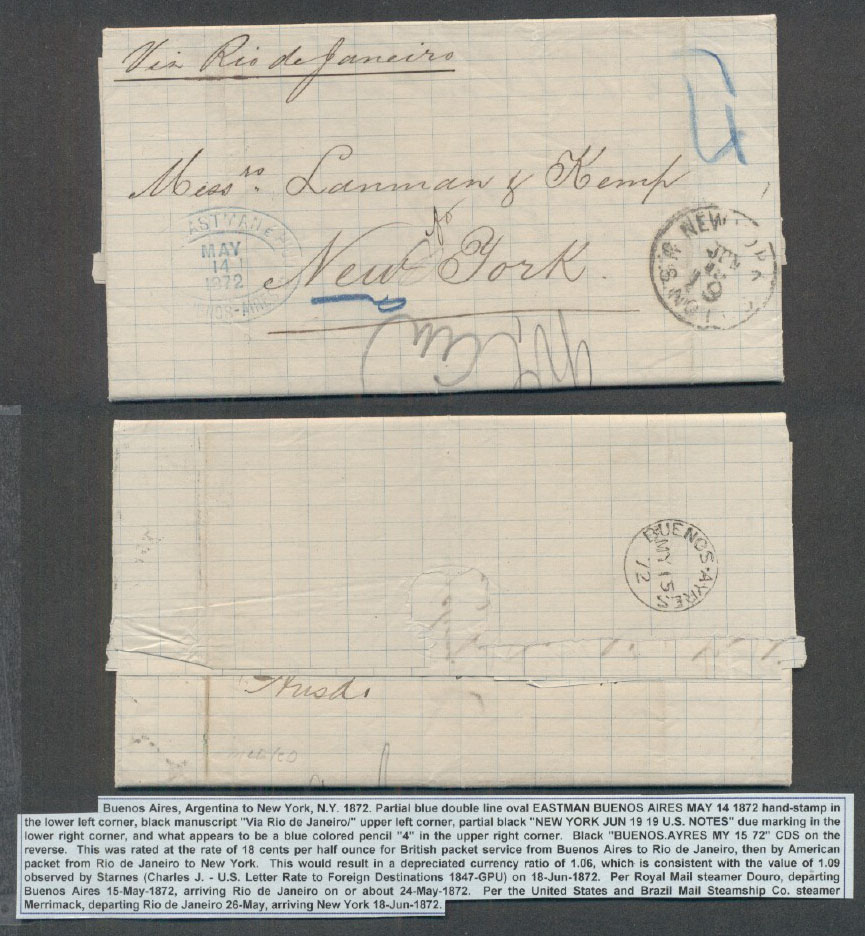 Via Rio de Janeiro
4
Messrs. Lanman & Kemp
New York.
EASTMAN
MAY
14
1872
NEW YORK
JUN
19
U.S. NOTES
BUENOS-AYRES
MY 15
72
Buenos Aires, Argentina to New York, N.Y. 1872. Partial blue double line oval EASTMAN BUENOS AIRES MAY 14 1872 hand-stamp in
the lower left corner, black manuscript "Via Rio de Janeiro/" upper left corner, partial black "NEW YORK JUN 19 19 U.S. NOTES" due marking in the
lower right corner, and what appears to be a blue colored pencil "4" in the upper right corner. Black "BUENOS.AYRES MY 15 72" CDS on the
reverse. This was rated at the rate of 18 cents per half ounce for British packet service from Buenos Aires to Rio de Janeiro, then by American
packet from Rio de Janeiro to New York. This would result in a depreciated currency ratio of 1.06, which is consistent with the value of 1.09
observed by Starnes (Charles J. - U.S. Letter Rate to Foreign Destinations 1847-GPU) on 18-Jun-1872. Per Royal Mail steamer Douro, departing
Buenos Aires 15-May-1872, arriving Rio de Janeiro on or about 24-May-1872. Per the United States and Brazil Mail Steamship Co. steamer
Merrimack, departing Rio de Janeiro 26-May, arriving New York 18-Jun-1872.